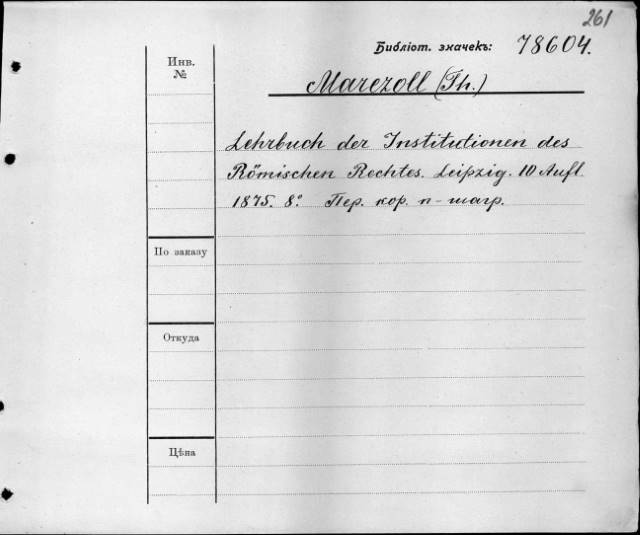 261
Библіот. значекъ: 78604.
Инв.
№
Marezoll (Th.)
Lehrbuch der Institutionen des
Römischen Rechtes. Leipzig. 10 Aufl
1875. 8º. Пер. кор. п-шагр.
По заказу
Откуда
Цѣна